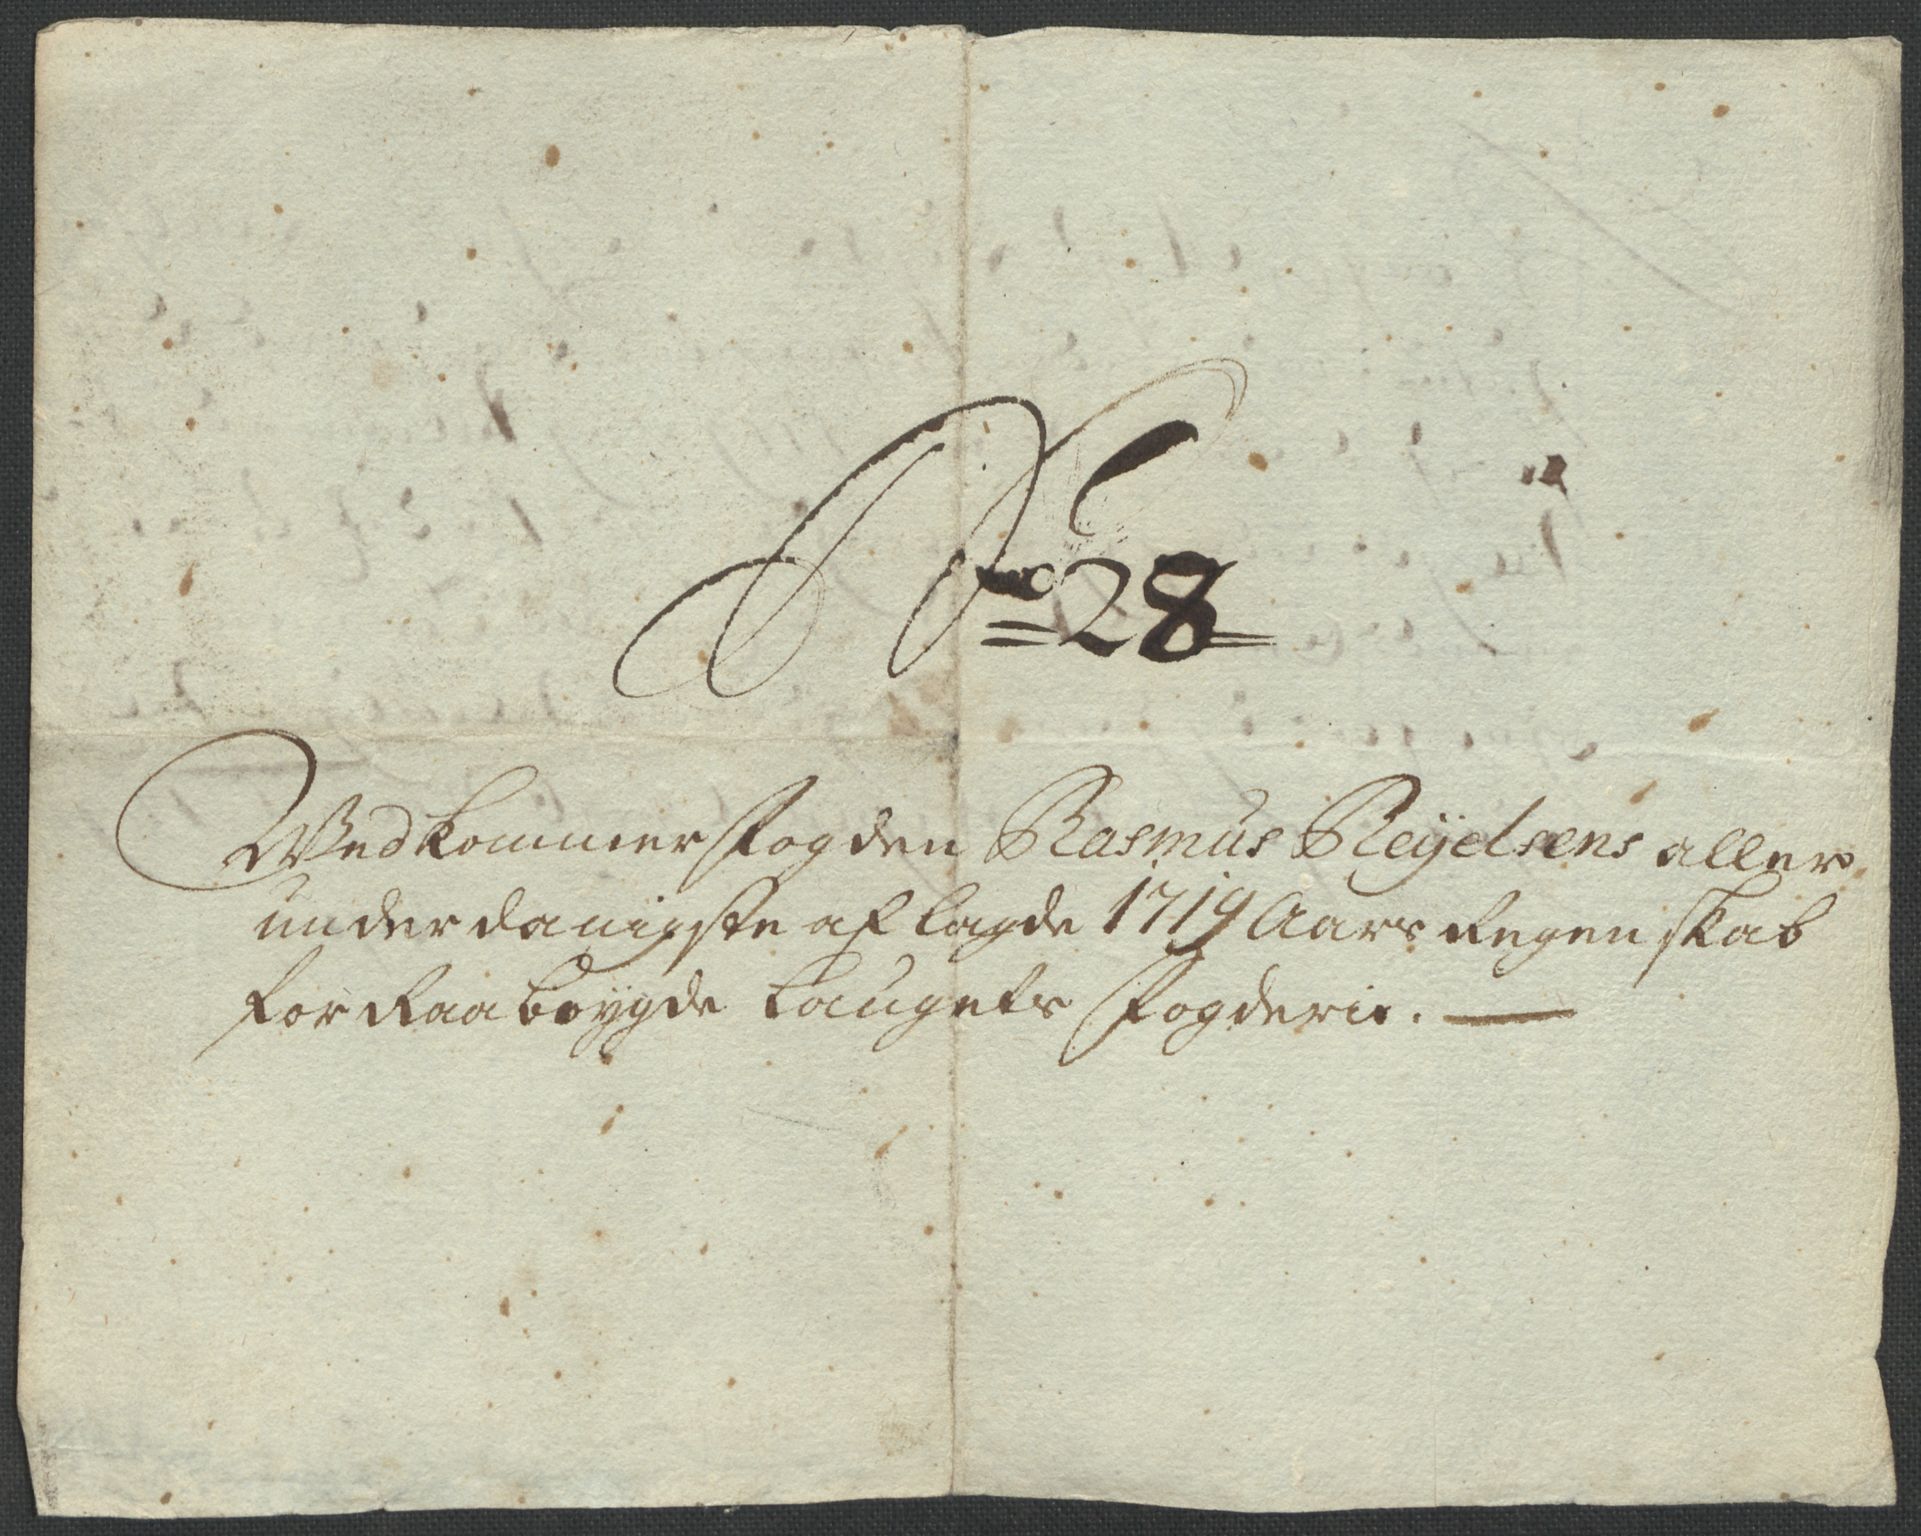 No 28
Vedkommer fogden Rasmus Reijelsens aller
underdanigste aflagde 1719 Aars Regenskab
for Raabøygde Laugets fogderie.